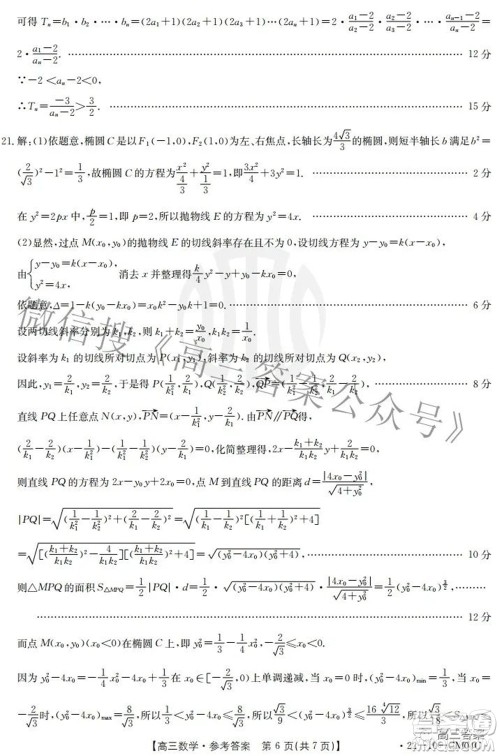 可得 Tₙ=b₁·b₂·…·bₙ=(2a₁+1)(2a₂+1)(2a₃+1)…(2aₙ+1)=2·(a₁-2)/(a₂-2)·(a₂-2)/(a₃-2)·…·(aₙ₋₁-2)/(aₙ-2)=
2·(a₁-2)/(aₙ-2). 12分
∵-2<aₙ-2<0,
∴Tₙ=-3/(aₙ-2)>3/2. 15分
21.解:(1)依题意,椭圆C是以F₁(-1,0),F₂(1,0)为左、右焦点,长轴长为4√3/3的椭圆,则短半轴长b满足b²=
(2/√3)²-1²=1/3,故椭圆C的方程为x²/(4/3)+y²/(1/3)=1,即3x²/4+3y²=1. 2分
在y²=2px中,p/2=1,即p=2,所以抛物线E的方程为y²=4x. 4分
(2)显然,过点M(x₀,y₀)的抛物线E的切线斜率存在且不为0,设切线方程为y-y₀=k(x-x₀),
由{y-y₀=k(x-x₀), y²=4x, 消去x并整理得k/4y²-y+y₀-kx₀=0,
依题意,Δ=1-k(y₀-kx₀)=x₀k²-y₀k+1=0. 6分
设两切线斜率分别为k₁,k₂,则k₁+k₂=y₀/x₀,k₁k₂=1/x₀.
设斜率为k₁的切线所对切点为P(x₁,y₁),斜率为k₂的切线所对切点为Q(x₂,y₂),
因此,y₁=2/k₁,y₂=2/k₂,于是得P(1/k₁²,2/k₁),Q(1/k₂²,2/k₂),QP=(1/k₁²-1/k₂²,2/k₁-2/k₂). 8分
直线PQ上任意点N(x,y),PN=(x-1/k₁²,y-2/k₁).由PN∥PQ得,
(2/k₁-2/k₂)(x-1/k₁²)-(1/k₁²-1/k₂²)(y-2/k₁)=0,化简整理得,2x-(k₁+k₂)/(k₁k₂)y+2/(k₁k₂)=0,
则直线PQ的方程为2x-y₀y+2x₀=0,点M到直线PQ的距离d=|4x₀-y₀²|/√(4+y₀²),
|PQ|=√((1/k₁²-1/k₂²)²+(2/k₁-2/k₂)²)=√((1/k₁-1/k₂)²[(1/k₁+1/k₂)²+4])
=√([((k₁+k₂)/(k₁k₂))²-4/(k₁k₂)][((k₁+k₂)/(k₁k₂))²+4])=√((y₀²-4x₀)(y₀²+4)), 10分
则△MPQ的面积S△MPQ=1/2|PQ|·d=1/2·√((y₀²-4x₀)(y₀²+4))·|4x₀-y₀²|/√(4+y₀²)=1/2(y₀²-4x₀)^(3/2).
12分
而点M(x₀,y₀)(x₀<0)在椭圆C上,即y₀²=1/3-1/4x₀²,-2/√3≤x₀<0.
因为y₀²-4x₀=-1/4x₀²-4x₀+1/3在x₀∈[-2/√3,0)上单调递减,当x₀=0时,(y₀²-4x₀)min=1/3,当x₀=
-2/√3时,(y₀²-4x₀)max=8/√3,所以1/3<(y₀²-4x₀)≤8/√3,所以√3/9<(y₀²-4x₀)^(3/2)≤
【高三数学·参考答案 第6页(共7页)】
微信搜《高三答案公众号》